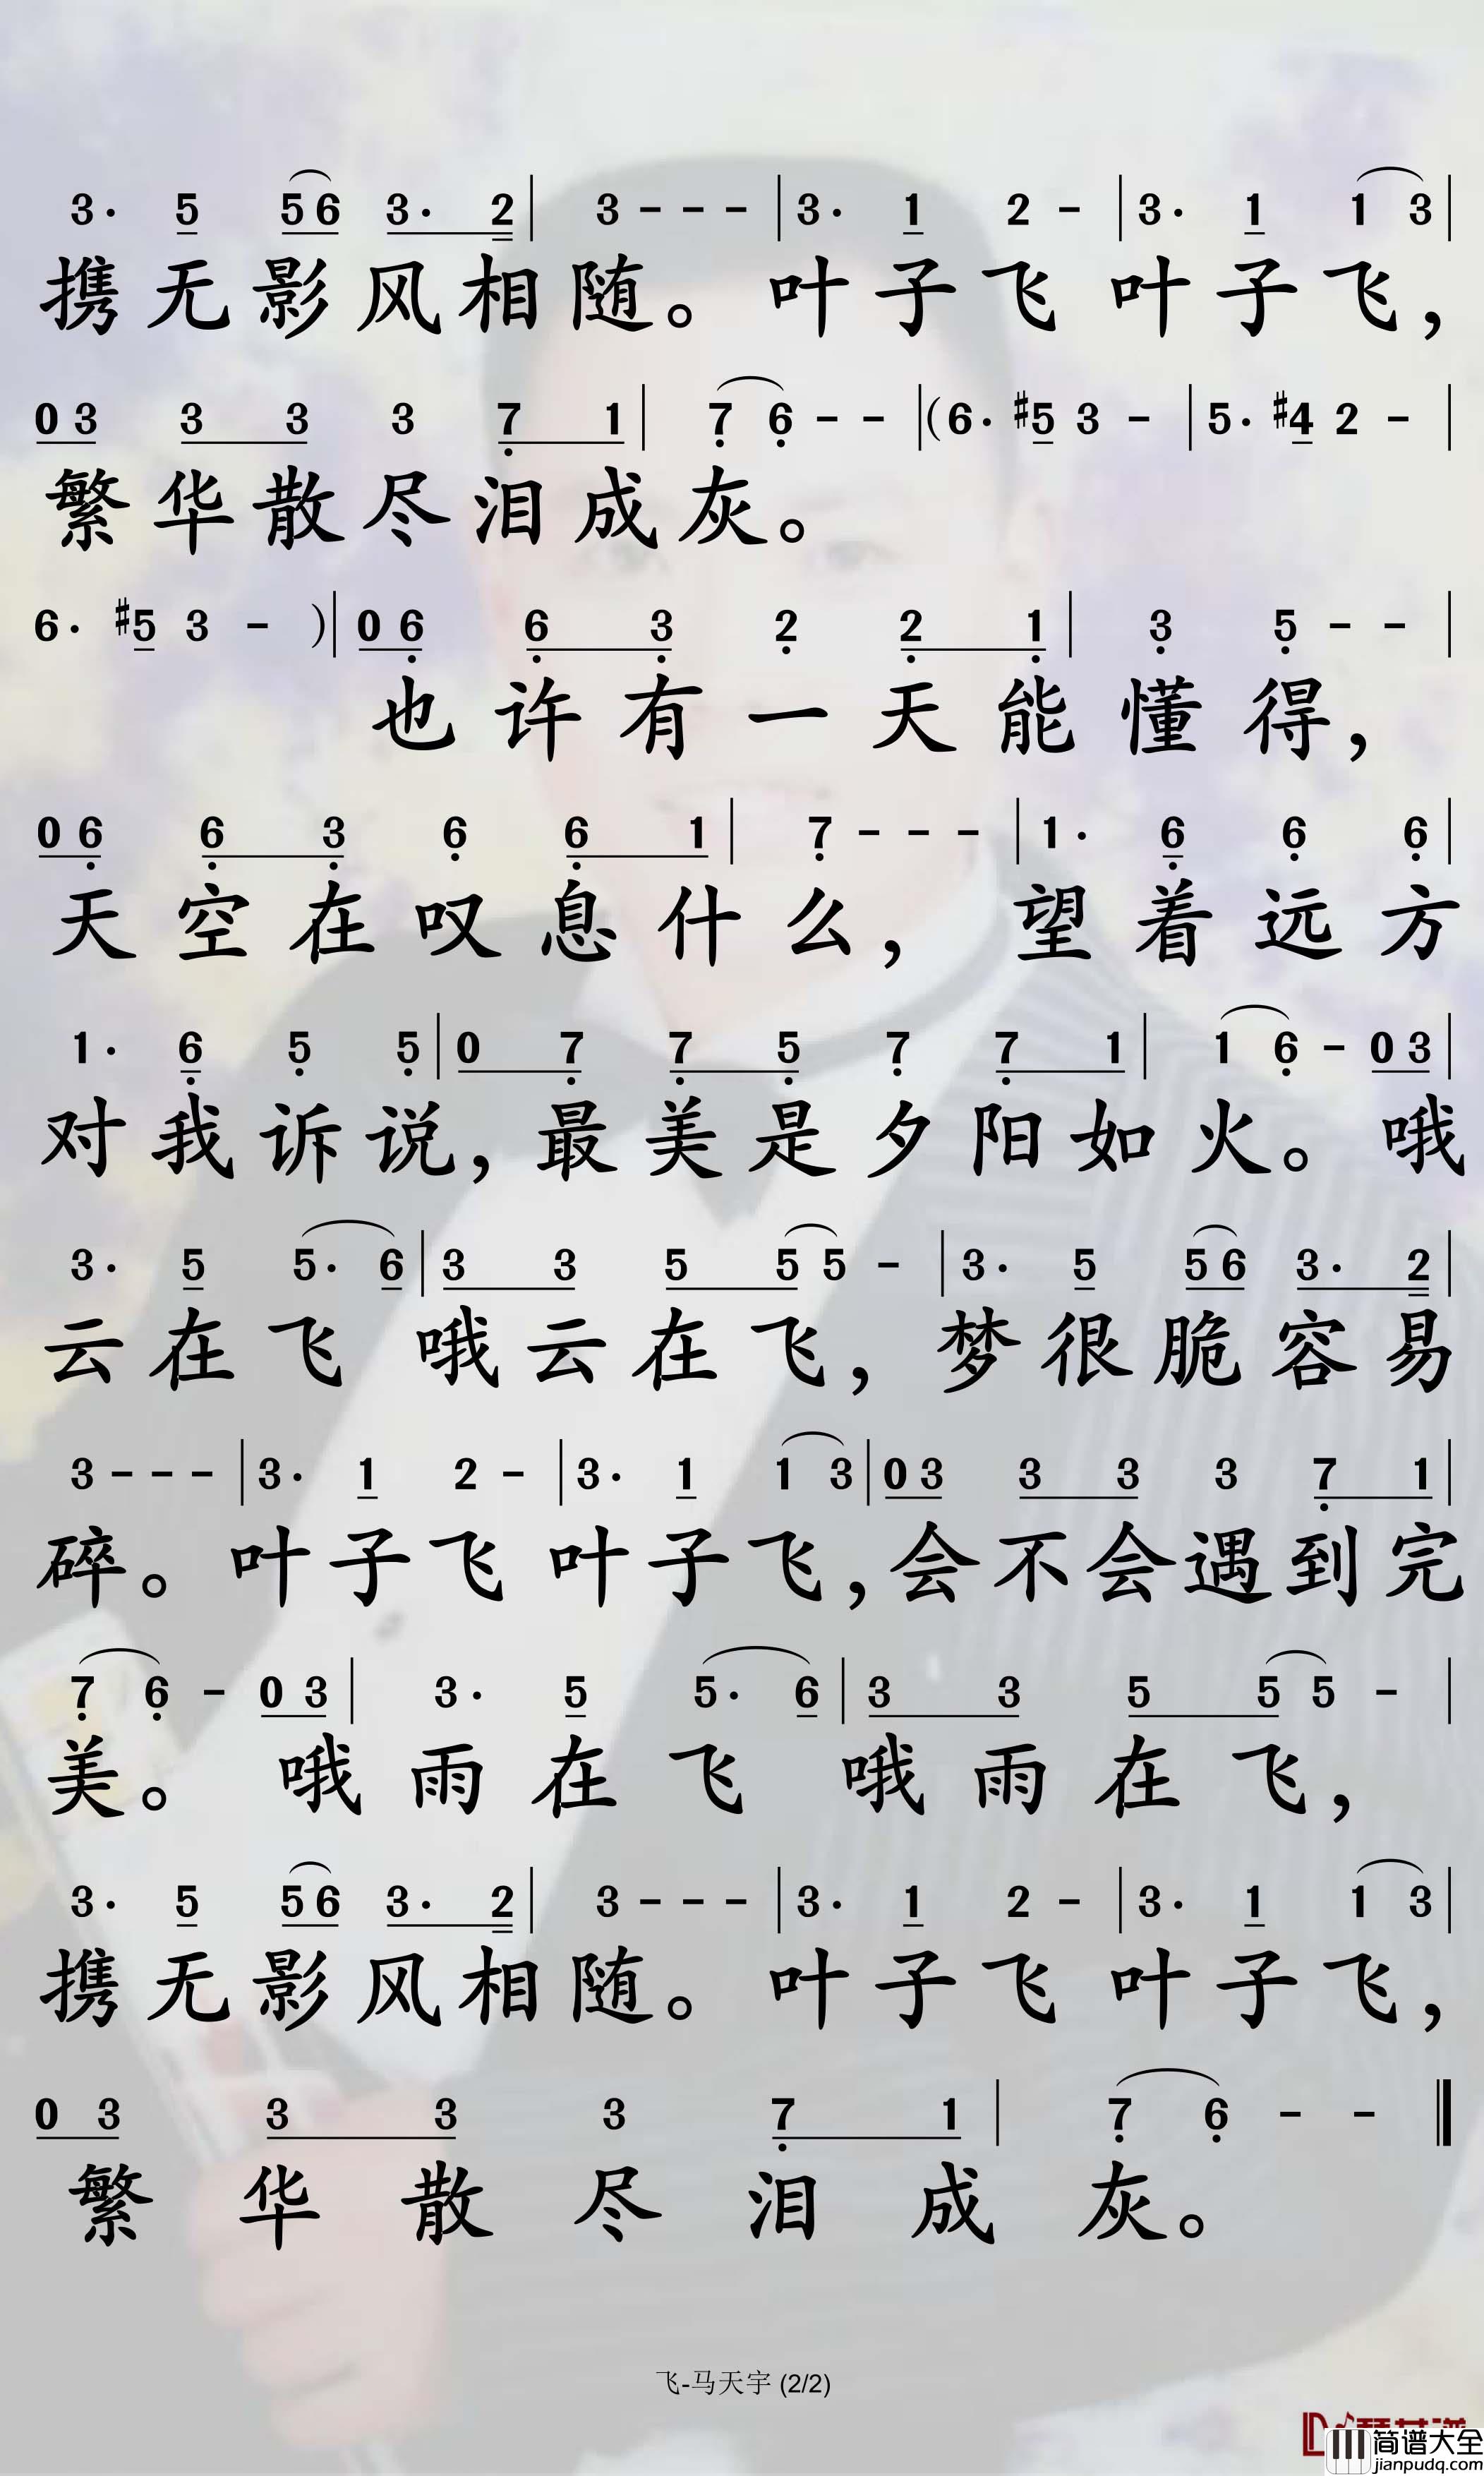 3· 5 56 3· 2 | 3 - - - | 3· 1 2 - | 3· 1 1 3 |
携无影风相随。叶子飞 叶子飞，
0 3 3 3 3 7 1 | 7 6 - - | (6· #5 3 - | 5· #4 2 - |
繁华散尽泪成灰。
6· #5 3 - ) | 0 6 6 3 2 2 1 | 3 5 - - |
也许有一天能懂得，
0 6 6 3 6 6 1 | 7 - - - | 1· 6 6 6 |
天空在叹息什么，望着远方
1· 6 5 5 | 0 7 7 5 7 7 1 | 1 6 - 0 3 |
对我诉说，最美是夕阳如火。哦
3· 5 5· 6 | 3 3 5 5 5 - | 3· 5 56 3· 2 |
云在飞 哦云在飞，梦很脆容易
3 - - - | 3· 1 2 - | 3· 1 1 3 | 0 3 3 3 3 7 1 |
碎。叶子飞 叶子飞，会不会遇到完
7 6 - 0 3 | 3· 5 5· 6 | 3 3 5 5 5 - |
美。哦雨在飞 哦雨在飞，
3· 5 56 3· 2 | 3 - - - | 3· 1 2 - | 3· 1 1 3 |
携无影风相随。叶子飞 叶子飞，
0 3 3 3 3 7 1 | 7 6 - - ‖
繁华散尽泪成灰。
飞-马天宇 (2/2)
简谱大全
jianpudq.com